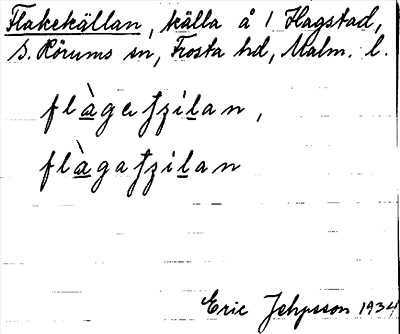 Flakekällan, källa å 1 Hagstad,
S. Rörums sn, Frosta hd, Malm. l.
flàgeʃzilan,
flàgaʃzilan
Eric Jeppsson 1934